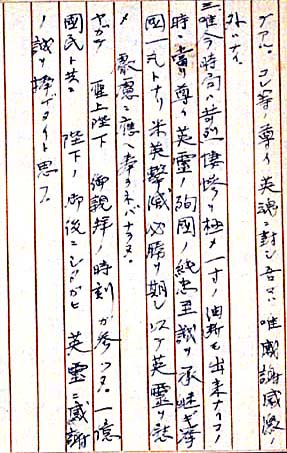 デアル。コレ等ノ尊イ英魂ニ対シ吾々ハ唯感謝感激ノ
外ハナイ。
三、唯今時局ハ苛烈悽惨ヲ極メ一寸ノ油断モ出来ナイコノ
時ニ当リ尊イ英霊ノ殉国ノ純忠至誠ヲ承継ギ挙
国一丸トナリ米英撃滅必勝ヲ期シ以テ英霊ヲ慰
メ　叡慮ニ応ヘ奉ラネバナラヌ。
ヤガテ　聖上陛下　御親拝ノ時刻ガ参ツタ。一億
国民ト共ニ　陛下ノ御後ニシタガヒ　英霊ニ感謝
ノ誠ヲ捧ゲタイト思フ。